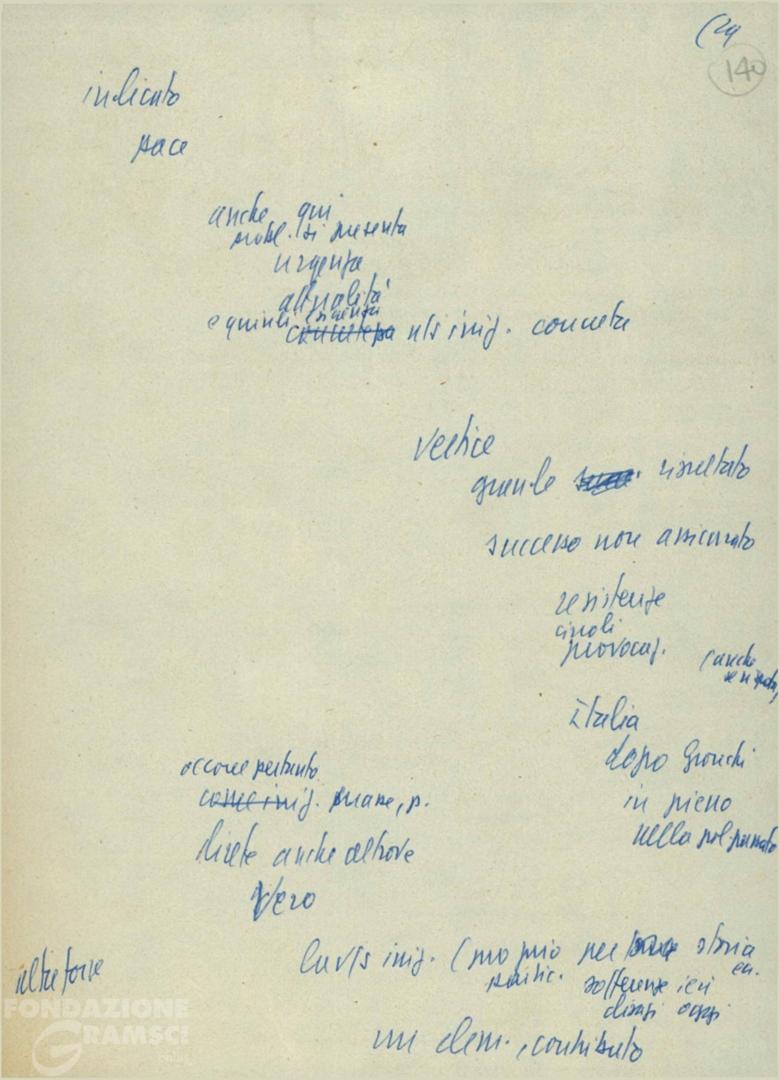 (24
140
indicato
pace
anche qui
probl. si presenta
urgenza
attualità
e quindi esigenza
concretezza vs iniz. concrete
vertice
grande risultato
successo non assicurato
resistenze
circoli
provocaz. (anche
Italia
dopo Gronchi
in pieno
nella pol. passato
occorre pertanto
iniz. p.
direte anche altrove
Vero
altre forze
la vs iniz. (proprio per storia
partic. sofferenze ieri
disagi oggi
un elem., contributo
FONDAZIONE
GRAMSCI